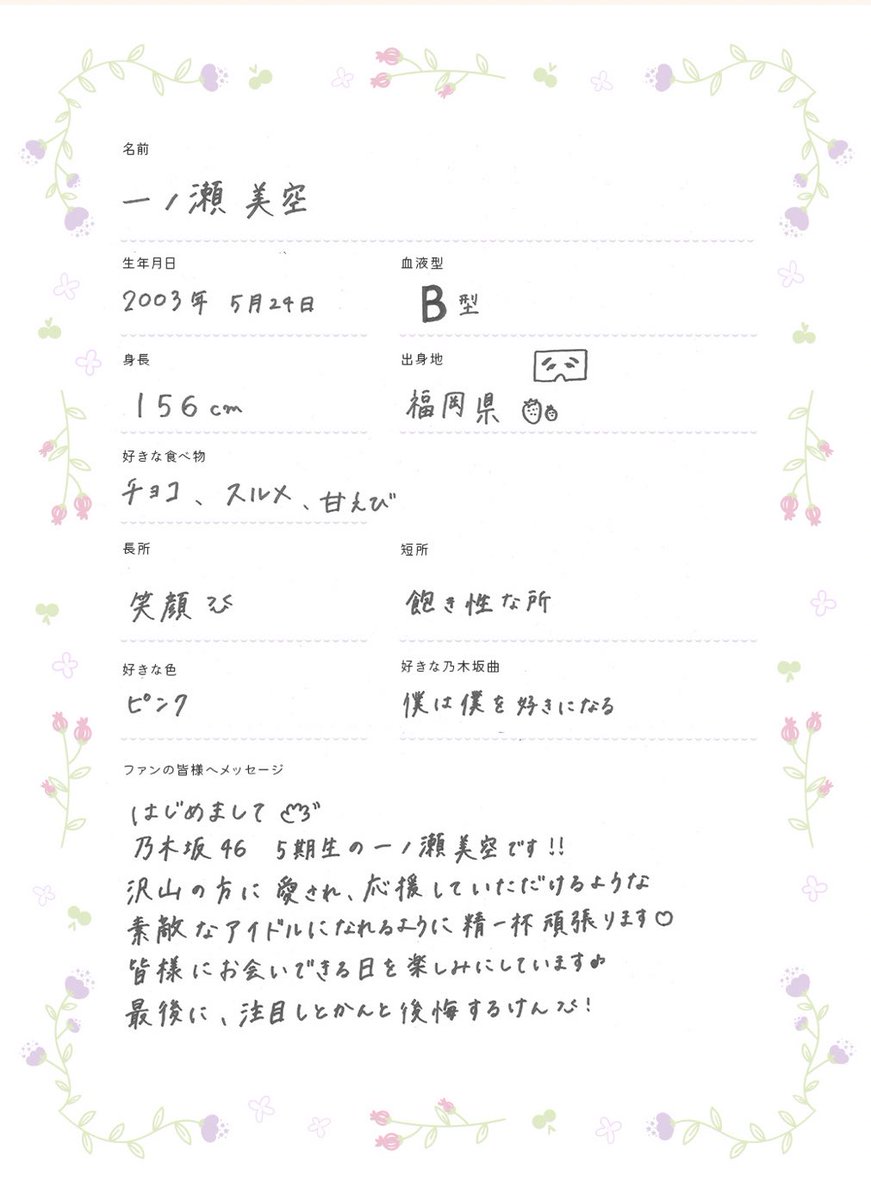 名前
一ノ瀬 美空
生年月日 血液型
2003年 5月24日 B型
身長 出身地
156cm 福岡県
好きな食べ物
チョコ、スルメ、甘えび
長所 短所
笑顔 飽き性な所
好きな色 好きな乃木坂曲
ピンク 僕は僕を好きになる
ファンの皆様へメッセージ
はじめまして
乃木坂46 5期生の一ノ瀬美空です!!
沢山の方に愛され、応援していただけるような
素敵なアイドルになれるように精一杯頑張ります♡
皆様にお会いできる日を楽しみにしています♪
最後に、注目しとかんと後悔するけん!